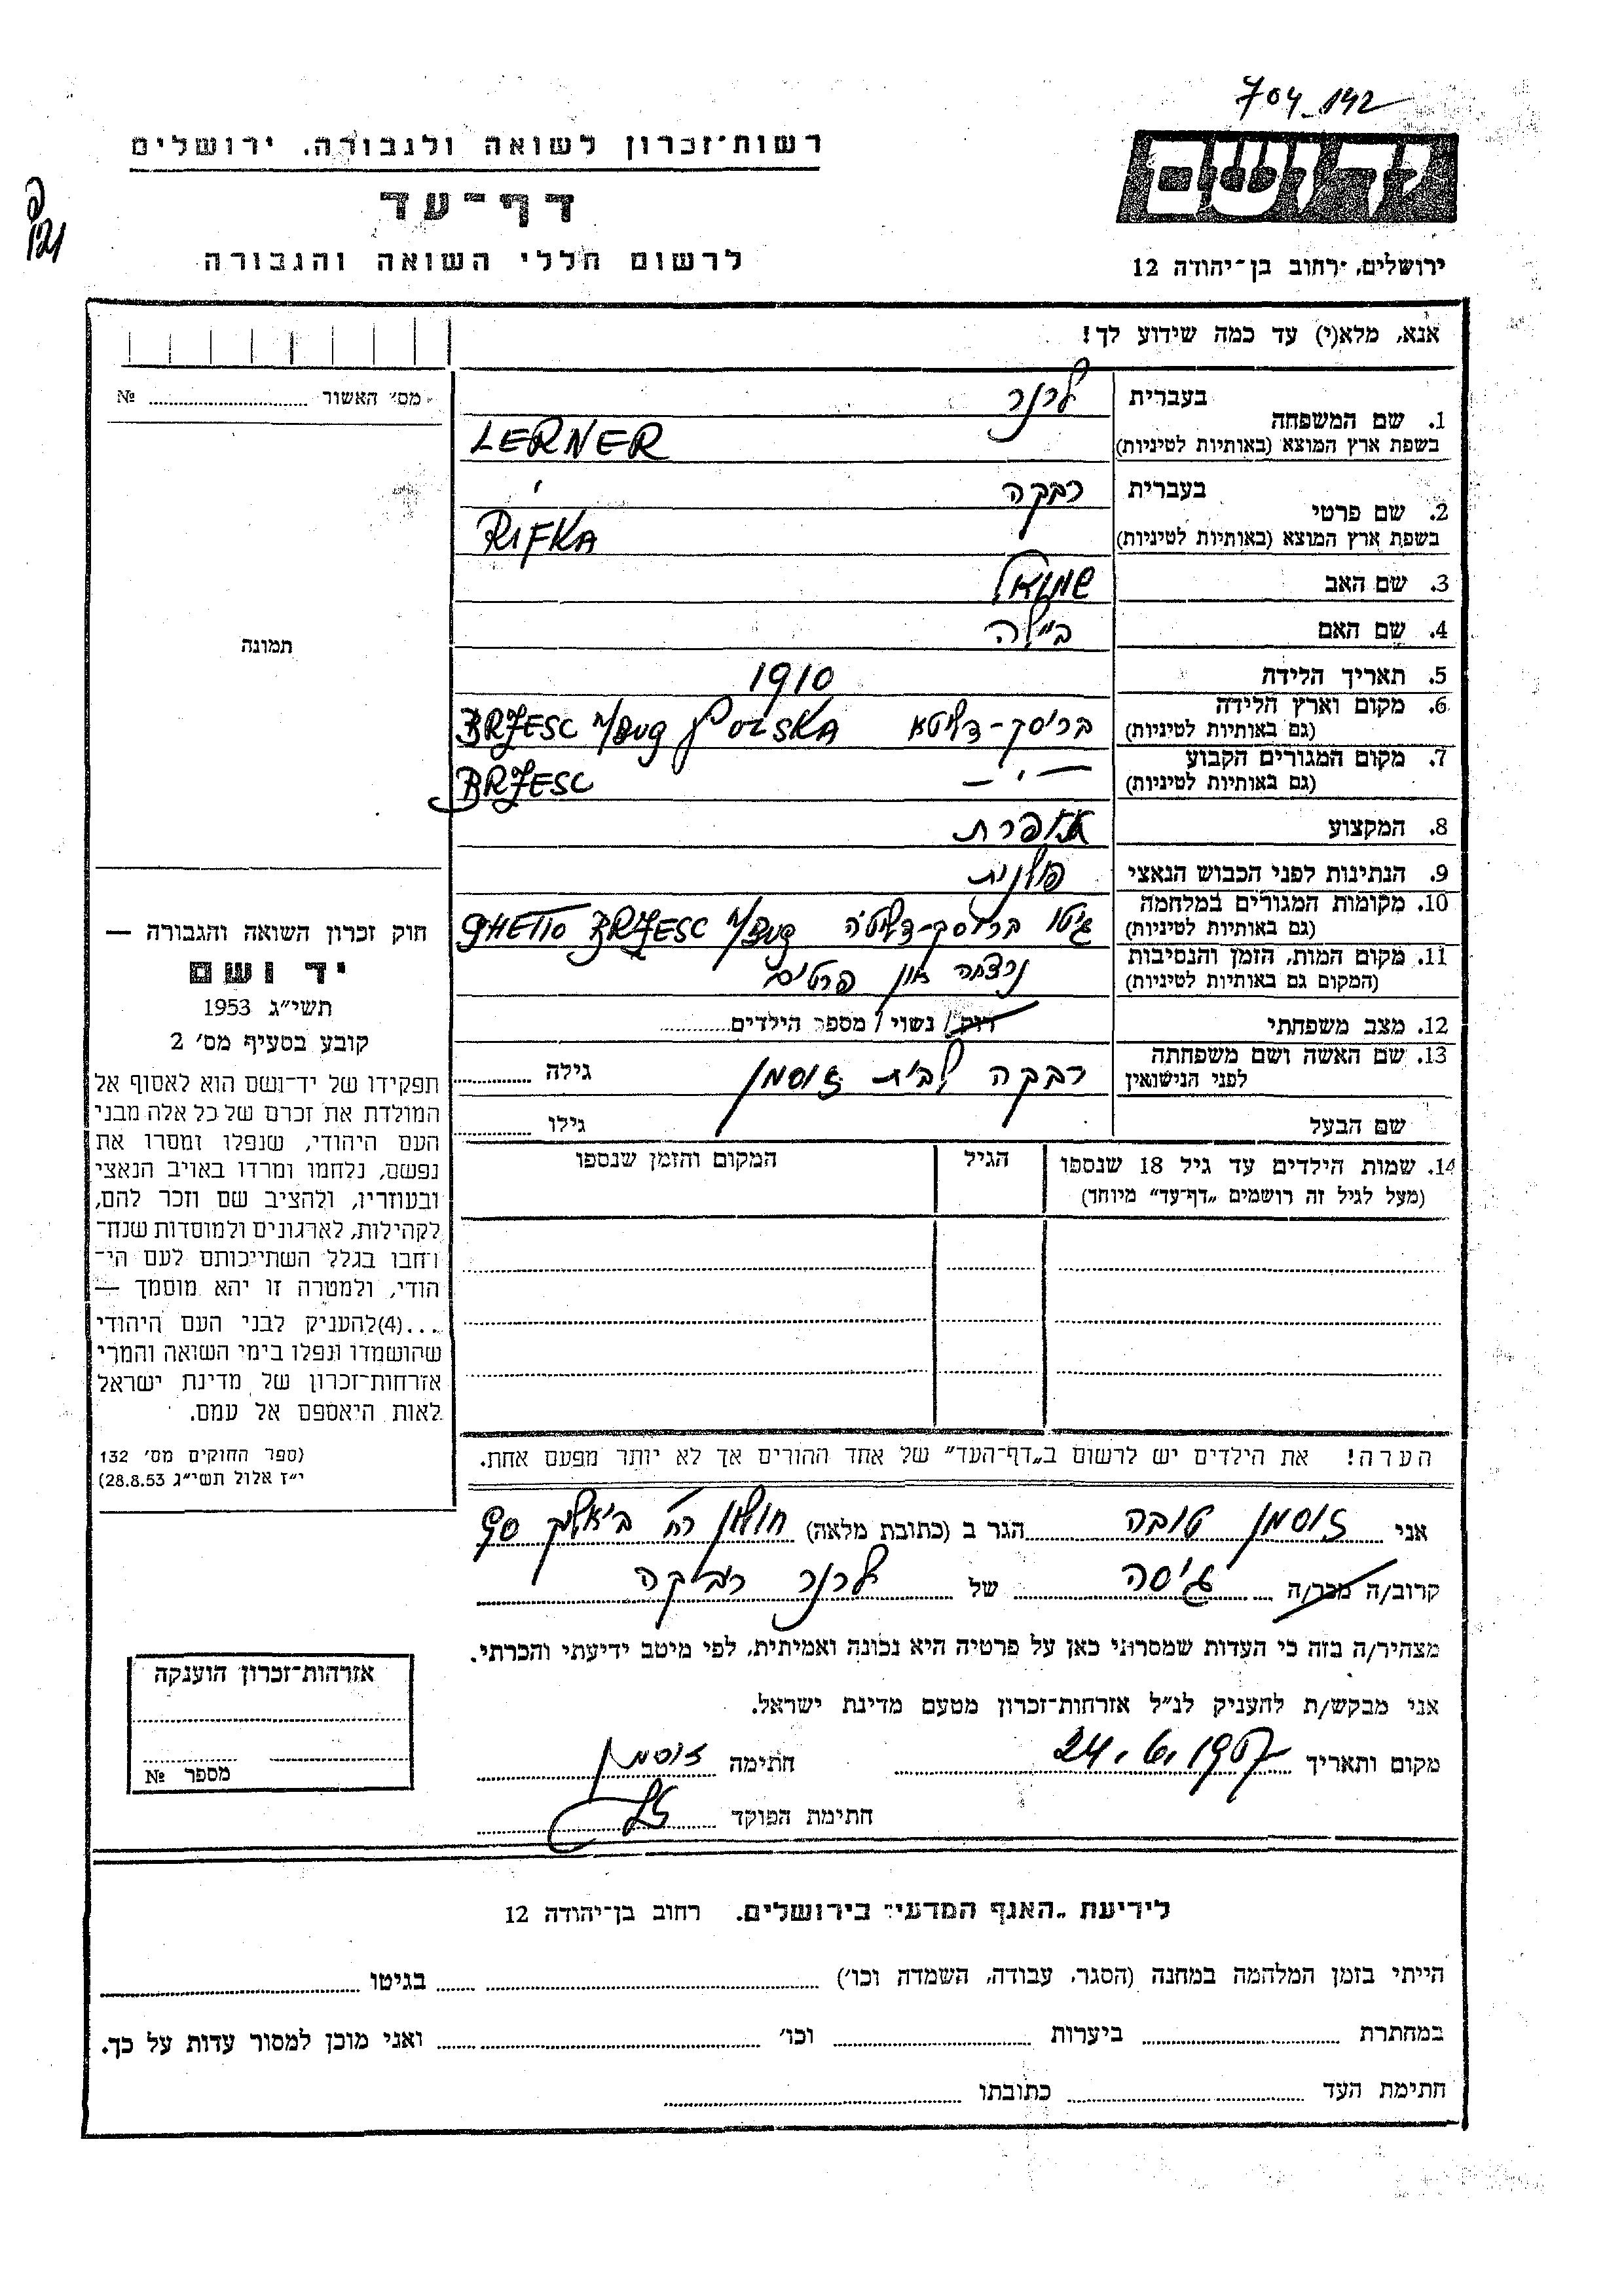 704_142
רשות־זכרון לשואה ולגבורה. ירושלים
יד ושם
דף־עד
לרשום חללי השואה והגבורה
ירושלים, רחוב בן־יהודה 12
121
אנא, מלא(י) עד כמה שידוע לך!
מס׳ האשור № 
1. שם המשפחה
בעברית לרנר
בשפת ארץ המוצא (באותיות לטיניות) LERNER
2. שם פרטי
בעברית רבקה
בשפת ארץ המוצא (באותיות לטיניות) RIFKA
3. שם האב שמואל
4. שם האם ביילה
תמונה
5. תאריך הלידה 1910
6. מקום וארץ הלידה בריסק-דליטא BRZESC n/BUG POLSKA
(גם באותיות לטיניות)
7. מקום המגורים הקבוע — " — BRZESC
(גם באותיות לטיניות)
8. המקצוע תופרת
9. הנתינות לפני הכבוש הנאצי פולנית
10. מקומות המגורים במלחמה גיטו בריסק-דליטה GHETTO BRZESC n/BUG
(גם באותיות לטיניות)
11. מקום המות, הזמן והנסיבות נרצחה אין פרטים
(המקום גם באותיות לטיניות)
12. מצב משפחתי רוק/ נשוי/ מספר הילדים
13. שם האשה ושם משפחתה רבקה לבית זוסמן גילה
לפני הנישואין
שם הבעל גילו
14. שמות הילדים עד גיל 18 שנספו הגיל המקום והזמן שנספו
(מעל לגיל זה רושמים „דף־עד” מיוחד)
הערה! את הילדים יש לרשום ב„דף־העד” של אחד ההורים אך לא יותר מפעם אחת.
חוק זכרון השואה והגבורה —
יד ושם
תשי״ג 1953
קובע בסעיף מס׳ 2
תפקידו של יד־ושם הוא לאסוף אל
המולדת את זכרם של כל אלה מבני
העם היהודי, שנפלו ומסרו את
נפשם, נלחמו ומרדו באויב הנאצי
ובעוזריו, ולהציב שם וזכר להם,
לקהילות, לארגונים ולמוסדות שנח־
רבו בגלל השתייכותם לעם הי־
הודי, ולמטרה זו יהא מוסמך —
...(4)להעניק לבני העם היהודי
שהושמדו ונפלו בימי השואה והמרי
אזרחות־זכרון של מדינת ישראל
לאות היאספם אל עמם.
(ספר החוקים מס׳ 132
י״ז אלול תשי״ג 28.8.53)
אני זוסמן טובה הגר ב (כתובת מלאה) חולון רח׳ ביאליק 90
קרוב/ה מכר/ה גיסה של לרנר רביקה
מצהיר/ה בזה כי העדות שמסרתי כאן על פרטיה היא נכונה ואמיתית, לפי מיטב ידיעתי והכרתי.
אני מבקש/ת להעניק לנ״ל אזרחות־זכרון מטעם מדינת ישראל.
מקום ותאריך 24.6.1957 חתימה זוסמן
חתימת הפוקד
אזרחות־זכרון הוענקה
מספר №
לידיעת „האגף המדעי” בירושלים. רחוב בן־יהודה 12
הייתי בזמן המלחמה במחנה (הסגר, עבודה, השמדה וכו׳) בגיטו
במחתרת ביערות וכו׳ ואני מוכן למסור עדות על כך.
חתימת העד כתובתו